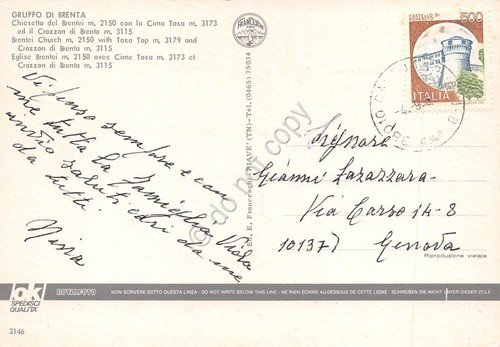 GRUPPO DI BRENTA
Chiesetta del Brentei m. 2150 con la Cima Tosa m. 3173
ed il Crozzon di Brenta m. 3115
Brentei Church m. 2150 with Tosa Top m. 3179 and
Crozzon di Brenta m. 3115
Eglise Brentei m. 2150 avec Cime Tosa m. 3173 et
Crozzon di Brenta m. 3115
Vi penso sempre e con
me tutta la famiglia Viola
invio saluti cari da me
da tutti
Nina
Ed. E. Francescotti - PIAVE' (TN) - Tel. (0465) 75034
do not copy
500
ITALIA
38010
Signora
Gianni Lazazzara
Via Carso 14-8
10137) Genova
Riproduzione vietata
ok
SPEDISCI
QUALITA'
ROTALFOTO
NON SCRIVERE SOTTO QUESTA LINEA - DO NOT WRITE BELOW THIS LINE - NE RIEN ECRIRE AU-DESSOUS DE CETTE LIGNE - SCHREIBEN SIE NICHT UNTER DIESER ZEILE
3146